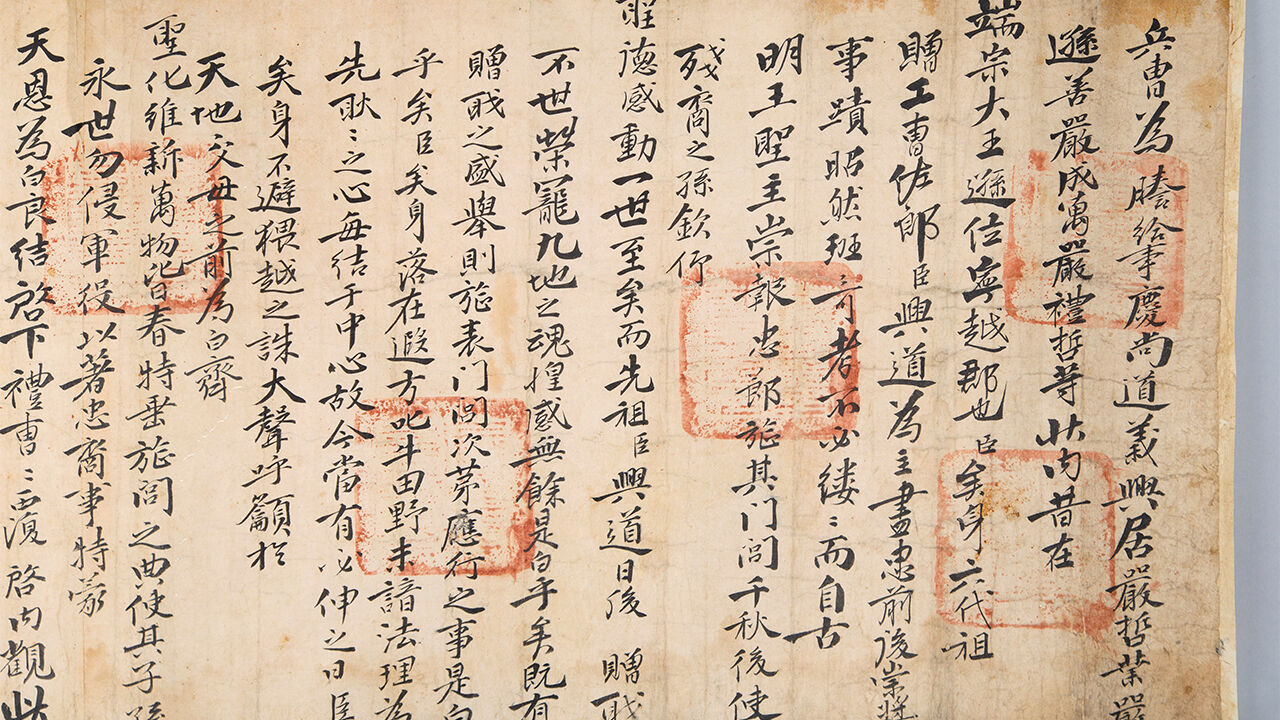 兵曹為謄給事慶尚道義興居嚴哲業嚴
遜善嚴成萬嚴禮哲等狀內昔在
端宗大王遜位寧越郡也臣矣身六代祖
贈工曹佐郎臣興道為主盡忠前後崇獎
事蹟昭然班班可考不必縷縷而自古
明王聖主崇報忠節旌其門閭千秋後使
殘裔之孫欽仰
聖德感動一世至矣而先祖臣興道日後 贈職
不世榮寵九地之魂惶感無餘是白乎矣既有
贈職之盛舉則旌表門閭次茅應行之事是白
乎矣臣矣身落在遐方叱牛田野未諳法理為
先耿耿之心每結于中心故今當有必伸之日臣
矣身不避猥越之誅大聲呼籲於
天地父母之前為白齊
聖化維新萬物皆春特垂旌閭之典使其子孫
永世勿侵軍役以著忠裔事特蒙
天恩為白良結啓下禮曹曹覆啓內觀此